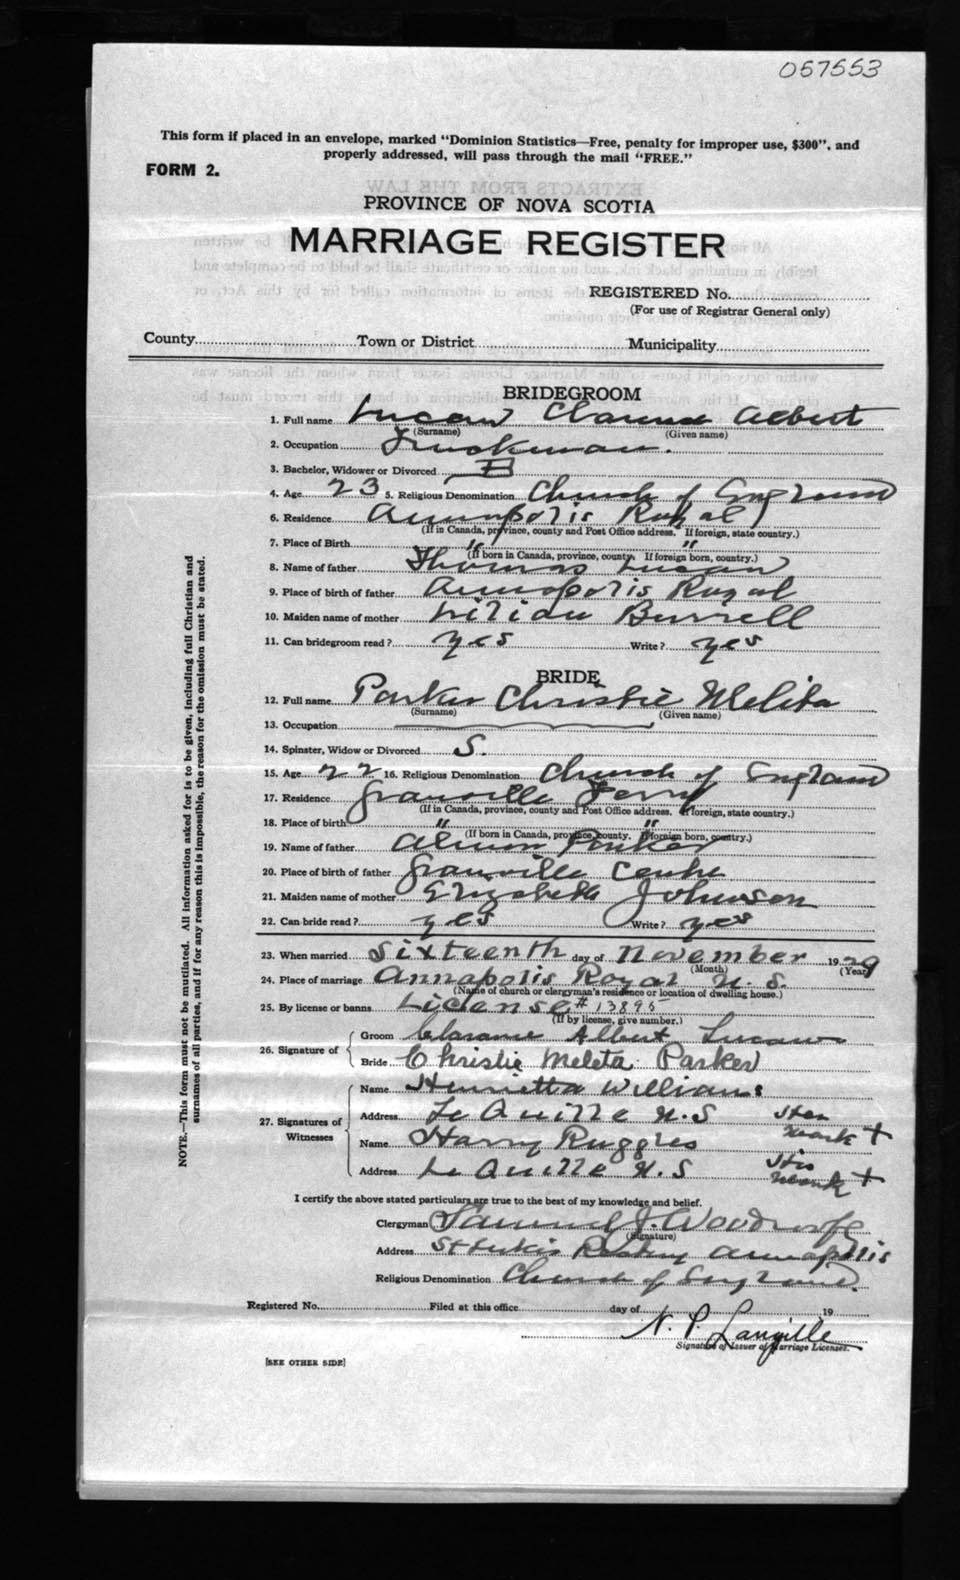 057553
This form if placed in an envelope, marked "Dominion Statistics—Free, penalty for improper use, $300", and
properly addressed, will pass through the mail "FREE."
FORM 2.
EXTRACTS FROM THE LAW
PROVINCE OF NOVA SCOTIA
MARRIAGE REGISTER
REGISTERED No.
(For use of Registrar General only)
County Town or District Municipality
BRIDEGROOM
1. Full name Lucas Clarence Albert
(Surname) (Given name)
2. Occupation Truckman.
3. Bachelor, Widower or Divorced B
4. Age 23 5. Religious Denomination Church of England
6. Residence Annapolis Royal
(If in Canada, province, county and Post Office address. If foreign, state country.)
7. Place of Birth " "
(If born in Canada, province, county. If foreign born, country.)
8. Name of father Thomas Lucas
9. Place of birth of father Annapolis Royal
10. Maiden name of mother Burrell
11. Can bridegroom read? yes Write? yes
BRIDE
12. Full name Parker Christie Melita
(Surname) (Given name)
13. Occupation
14. Spinster, Widow or Divorced S.
15. Age 22 16. Religious Denomination Church of England
17. Residence Granville Ferry
(If in Canada, province, county and Post Office address. If foreign, state country.)
18. Place of birth " "
(If born in Canada, province, county. If foreign born, country.)
19. Name of father Parker
20. Place of birth of father Granville Centre
21. Maiden name of mother Elizabeth Johnson
22. Can bride read? yes Write? yes
23. When married Sixteenth day of November 1929
(Month) (Year)
24. Place of marriage Annapolis Royal N. S.
(Name of church or clergyman's residence or location of dwelling house.)
25. By license or banns License # 13895
(If by license, give number.)
26. Signature of
Groom Clarance Albert Lucas
Bride Christie Meleta Parker
27. Signatures of Witnesses
Name Henrietta Williams
Address Le Quille N.S Her mark +
Name Harry Ruggles
Address Le Quille N.S His Mark +
I certify the above stated particulars are true to the best of my knowledge and belief.
Clergyman Samuel J. Woodroofe
(Signature)
Address St Lukes Rectory Annapolis
Religious Denomination Church of England.
Registered No. Filed at this office day of 19
N. P. Langille
Signature of Issuer of Marriage Licenses.
[SEE OTHER SIDE]
NOTE.—This form must not be mutilated. All information asked for is to be given, including full Christian and
surnames of all parties, and if for any reason this is impossible, the reason for the omission must be stated.